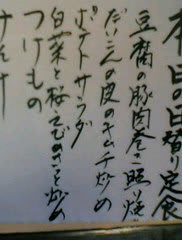 本日の日替り定食
豆腐の豚肉巻き照り焼
だいこんの皮のキムチ炒め
ポテトサラダ
白菜と桜えびのさっと炒め
つけもの
みそ汁